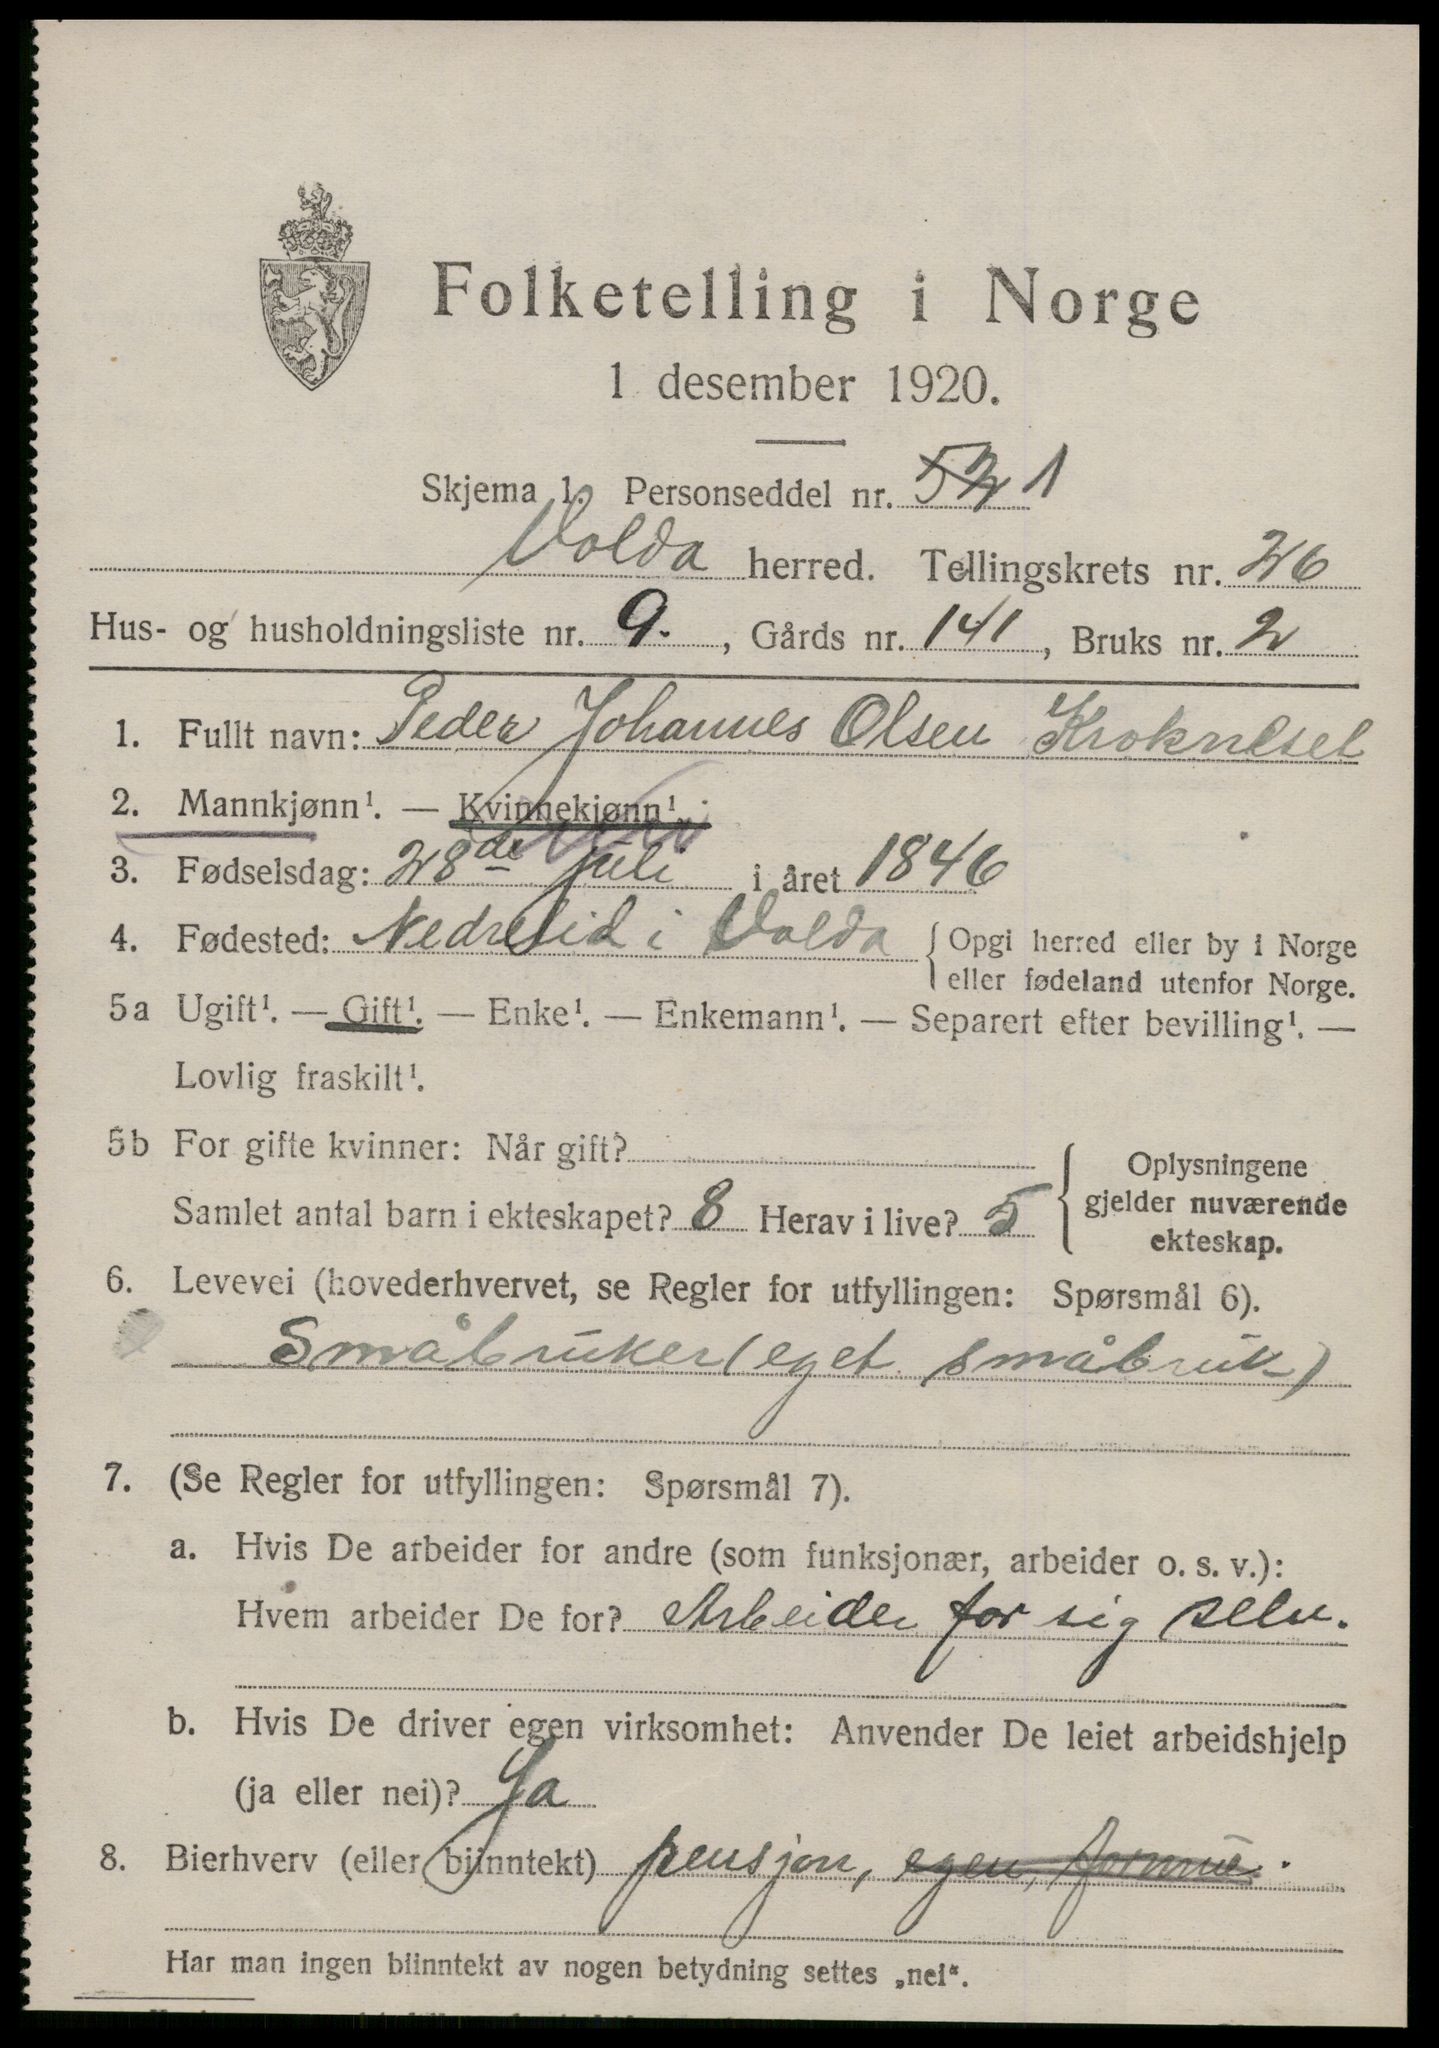 Folketelling i Norge
1 desember 1920.
Skjema 1. Personseddel nr. 52 1
Volda herred. Tellingskrets nr. 26
Hus- og husholdningsliste nr. 9. , Gårds nr. 141 , Bruks nr. 2
1. Fullt navn: Peder Johannes Olsen Krokneset
2. Mannkjønn¹. — Kvinnekjønn¹.
3. Fødselsdag: 28de Juli i året 1846
4. Fødested: Nedreeid i Volda { Opgi herred eller by i Norge
eller fødeland utenfor Norge.
5a Ugift¹. — Gift¹. — Enke¹. — Enkemann¹. — Separert efter bevilling¹. —
Lovlig fraskilt¹.
5b For gifte kvinner: Når gift?
Samlet antal barn i ekteskapet? 8 Herav i live? 5 { Oplysningene
gjelder nuværende
ekteskap.
6. Levevei (hovederhvervet, se Regler for utfyllingen: Spørsmål 6).
Småbruker (eget småbruk)
7. (Se Regler for utfyllingen: Spørsmål 7).
a. Hvis De arbeider for andre (som funksjonær, arbeider o. s. v.):
Hvem arbeider De for? Arbeider for sig selv.
b. Hvis De driver egen virksomhet: Anvender De leiet arbeidshjelp
(ja eller nei)? Ja
8. Bierhverv (eller biinntekt) pensjon, egen, formue.
Har man ingen biinntekt av nogen betydning settes „nei“.